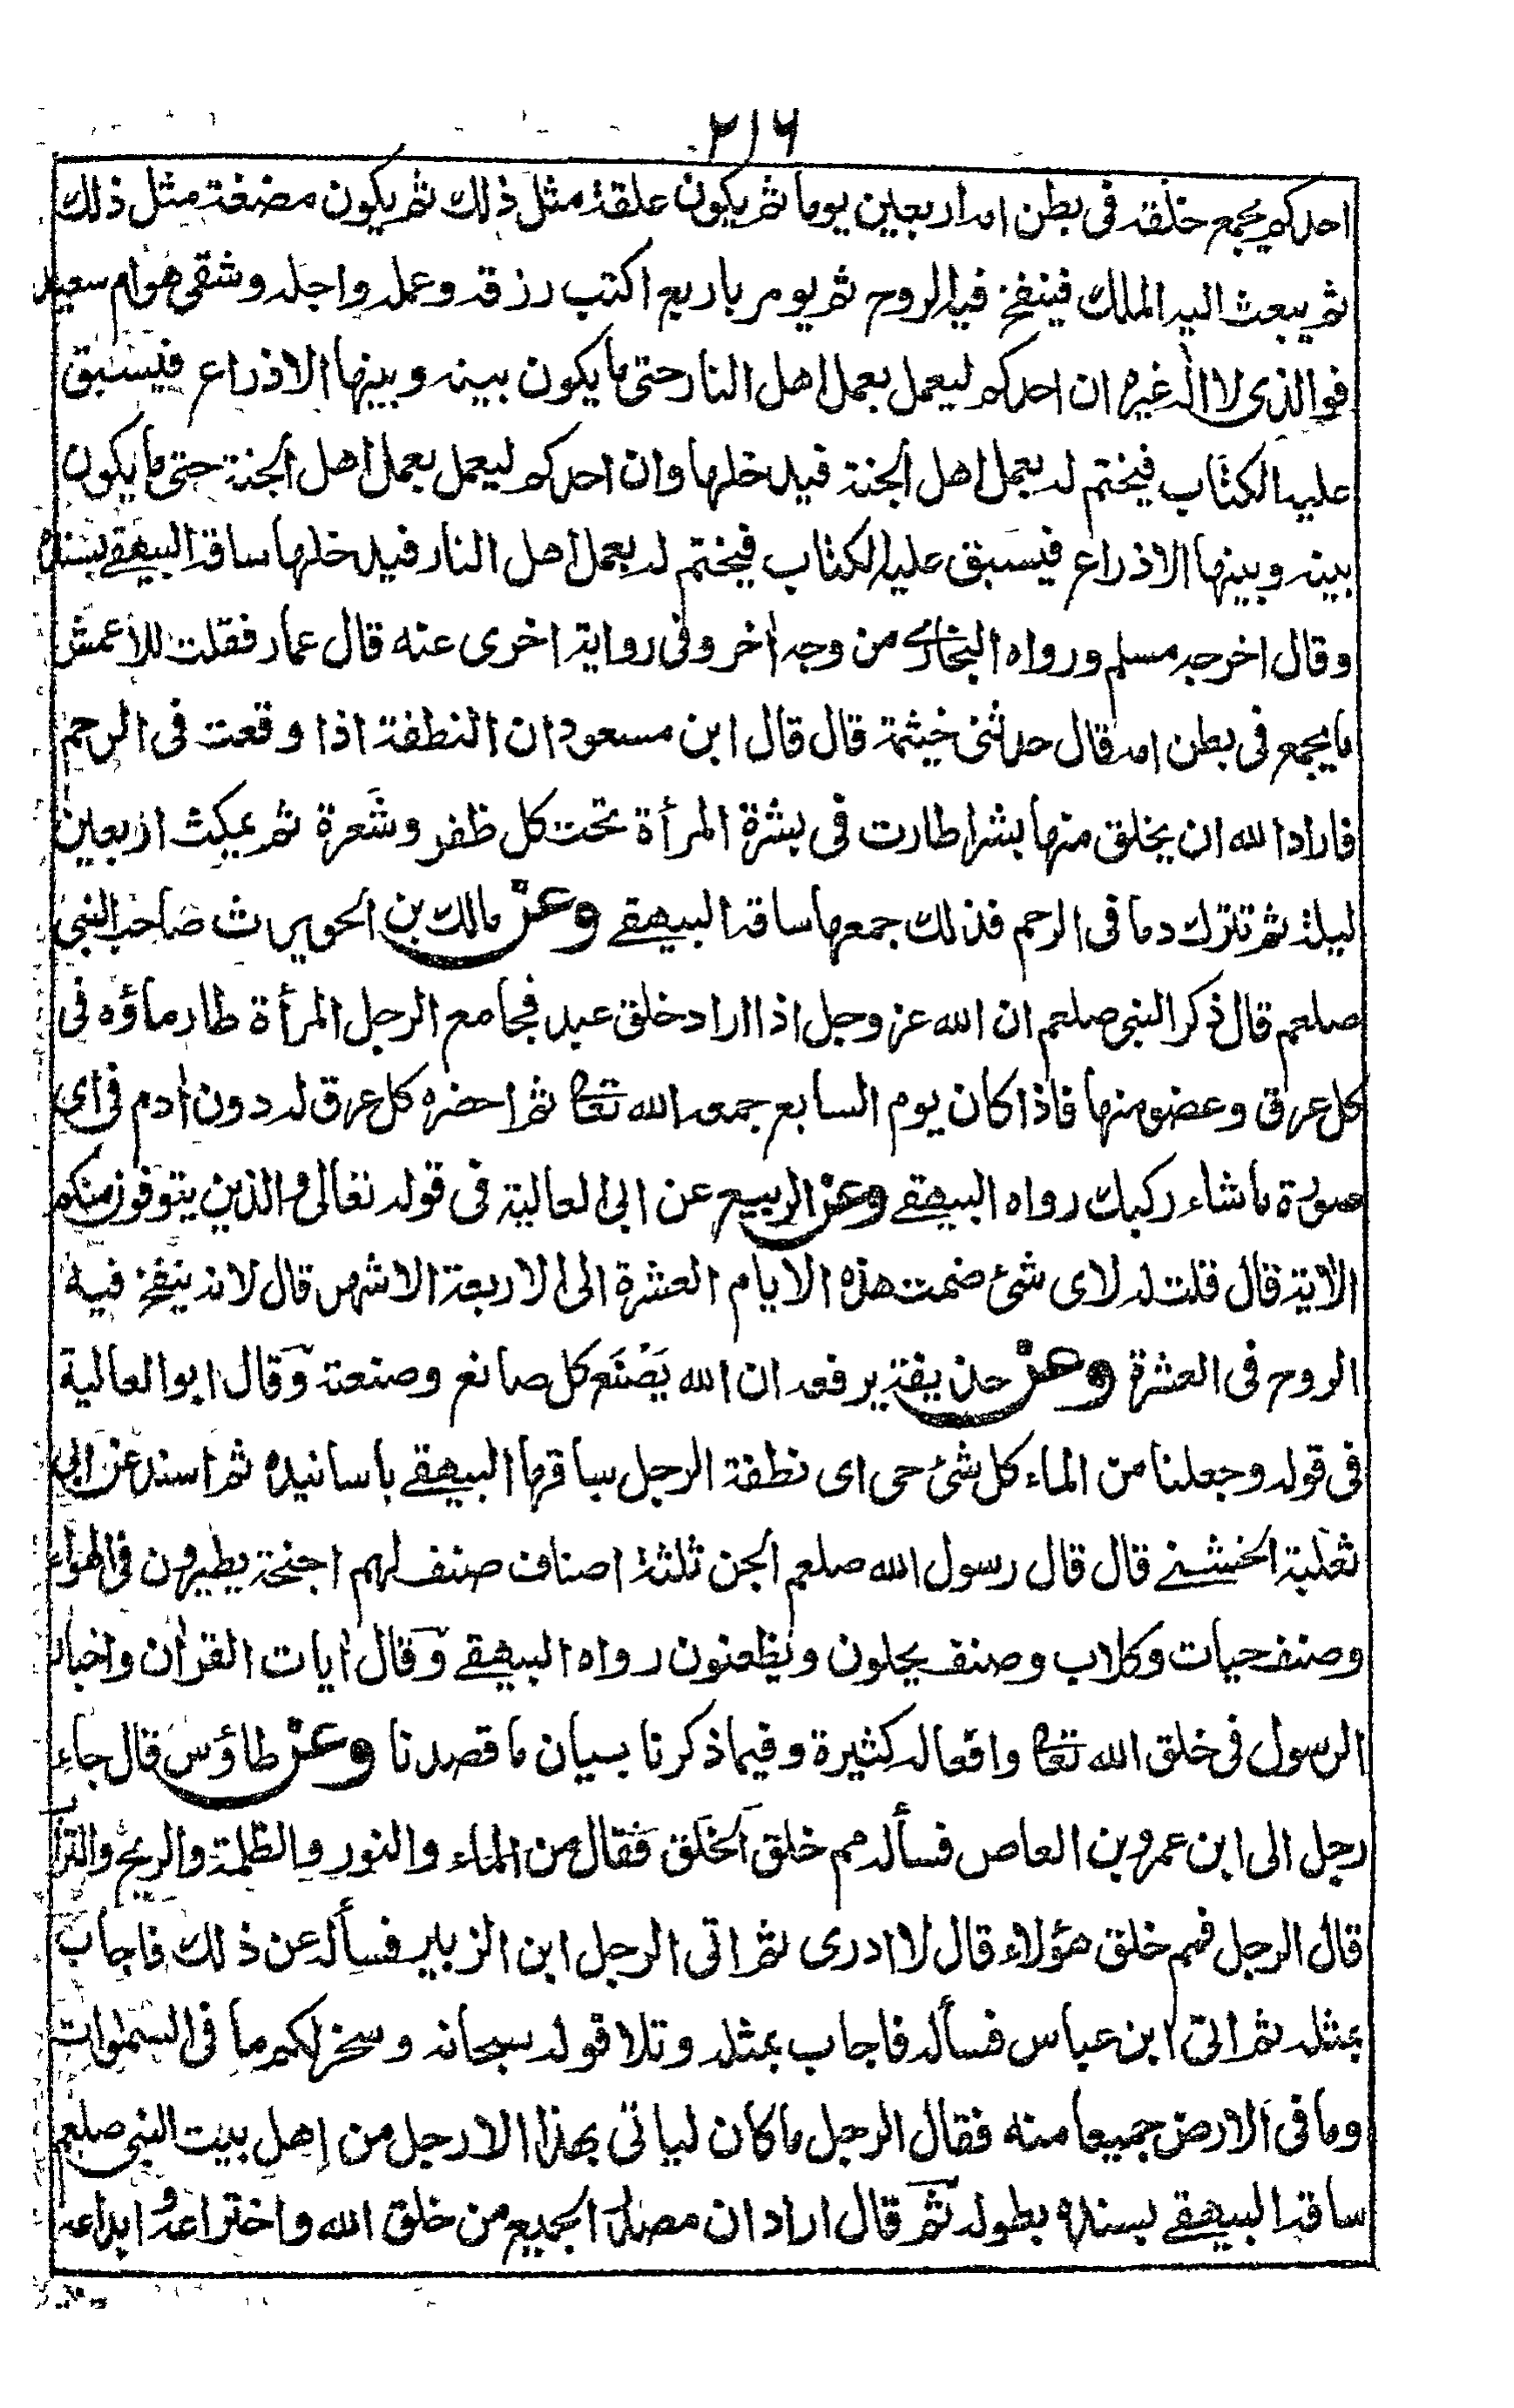 ٢١٦
احدكم يجمع خلقه فى بطن امه اربعين يوما ثم يكون علقة مثل ذلك ثم يكون مضغة مثل ذلك
ثم يبعث اليه الملك فينفخ فيه الروح ثم يومر باربع اكتب رزقه وعمله واجله وشقى هو ام سعيد
فو الذى لا اله غيره ان احدكم ليعمل بعمل اهل النار حتى ما يكون بينه وبينها الا ذراع فيسبق
عليه الكتاب فيختم له بعمل اهل الجنة فيدخلها وان احدكم ليعمل بعمل اهل الجنة حتى ما يكون
بينه وبينها الا ذراع فيسبق عليه الكتاب فيختم له بعمل اهل النار فيدخلها ساقه البيهقے بسنده
وقال اخرجه مسلم ورواه البخارى من وجه اٰخر وفى رواية اخرى عنه قال عمار فقلت للاعمش
ما يجمع فى بطن امه قال حدثنى خيثمة قال قال ابن مسعود ان النطفة اذا وقعت فى الرحم
فاراد الله ان يخلق منها بشرا طارت فى بشرة المرأة تحت كل ظفر وشعرة ثم يمكث اربعين
ليلة ثم تترك دما فى الرحم فذلك جمعها ساقه البيهقے وعن مالك بن الحويرث صاحب النبى
صلعم قال ذكر النبى صلعم ان الله عز وجل اذا اراد خلق عبد فجامع الرجل المرأة طار ماؤه فى
كل عرق وعضو منها فاذا كان يوم السابع جمعه الله تعا ثم احضره كل عرق له دون اٰدم فى اى
صورة ما شاء ركبك رواه البيهقے وعن الربيع عن ابى العالية فى قوله تعالى والذين يتوفون منكم
الاٰية قال قلت له لاى شئ ضمت هذه الايام العشرة الى الاربعة الاشهر قال لانه ينفخ فيه
الروح فى العشرة وعن حذيفة يرفعه ان الله يَصْنَع كل صانع وصنعته وقال ابو العالية
فى قوله وجعلنا من الماء كل شئ حى اى نطفة الرجل ساقها البيهقے باسانيده ثم اسند عن ابى
ثعلبة الخشنے قال قال رسول الله صلعم الجن ثلثة اصناف صنف لهم اجنحة يطيرون فى الهواء
وصنف حيات وكلاب وصنف يحلون ويظعنون رواه البيهقے وقال اٰيات القراٰن واخبار
الرسول فى خلق الله تعا وافعاله كثيرة وفيما ذكرنا بيان ما قصدنا وعن طاؤس قال جاء
رجل الى ابن عمرو بن العاص فسأله مم خلق الخلق فقال من الماء والنور والظلمة والريح والتراب
قال الرجل فمم خلق هؤلاء قال لا ادرى ثم اتى الرجل ابن الزبير فسأله عن ذلك فاجاب
بمثله ثم اتى ابن عباس فسأله فاجاب بمثله وتلا قوله سبحانه وسخر لكم ما فى السمٰوات
وما فى الارض جميعا منه فقال الرجل ما كان لياتى بهذا الا رجل من اهل بيت النبى صلعم
ساقه البيهقے بسنده بطوله ثم قال اراد ان مصدر الجميع من خلق الله واختراعه وابداعه